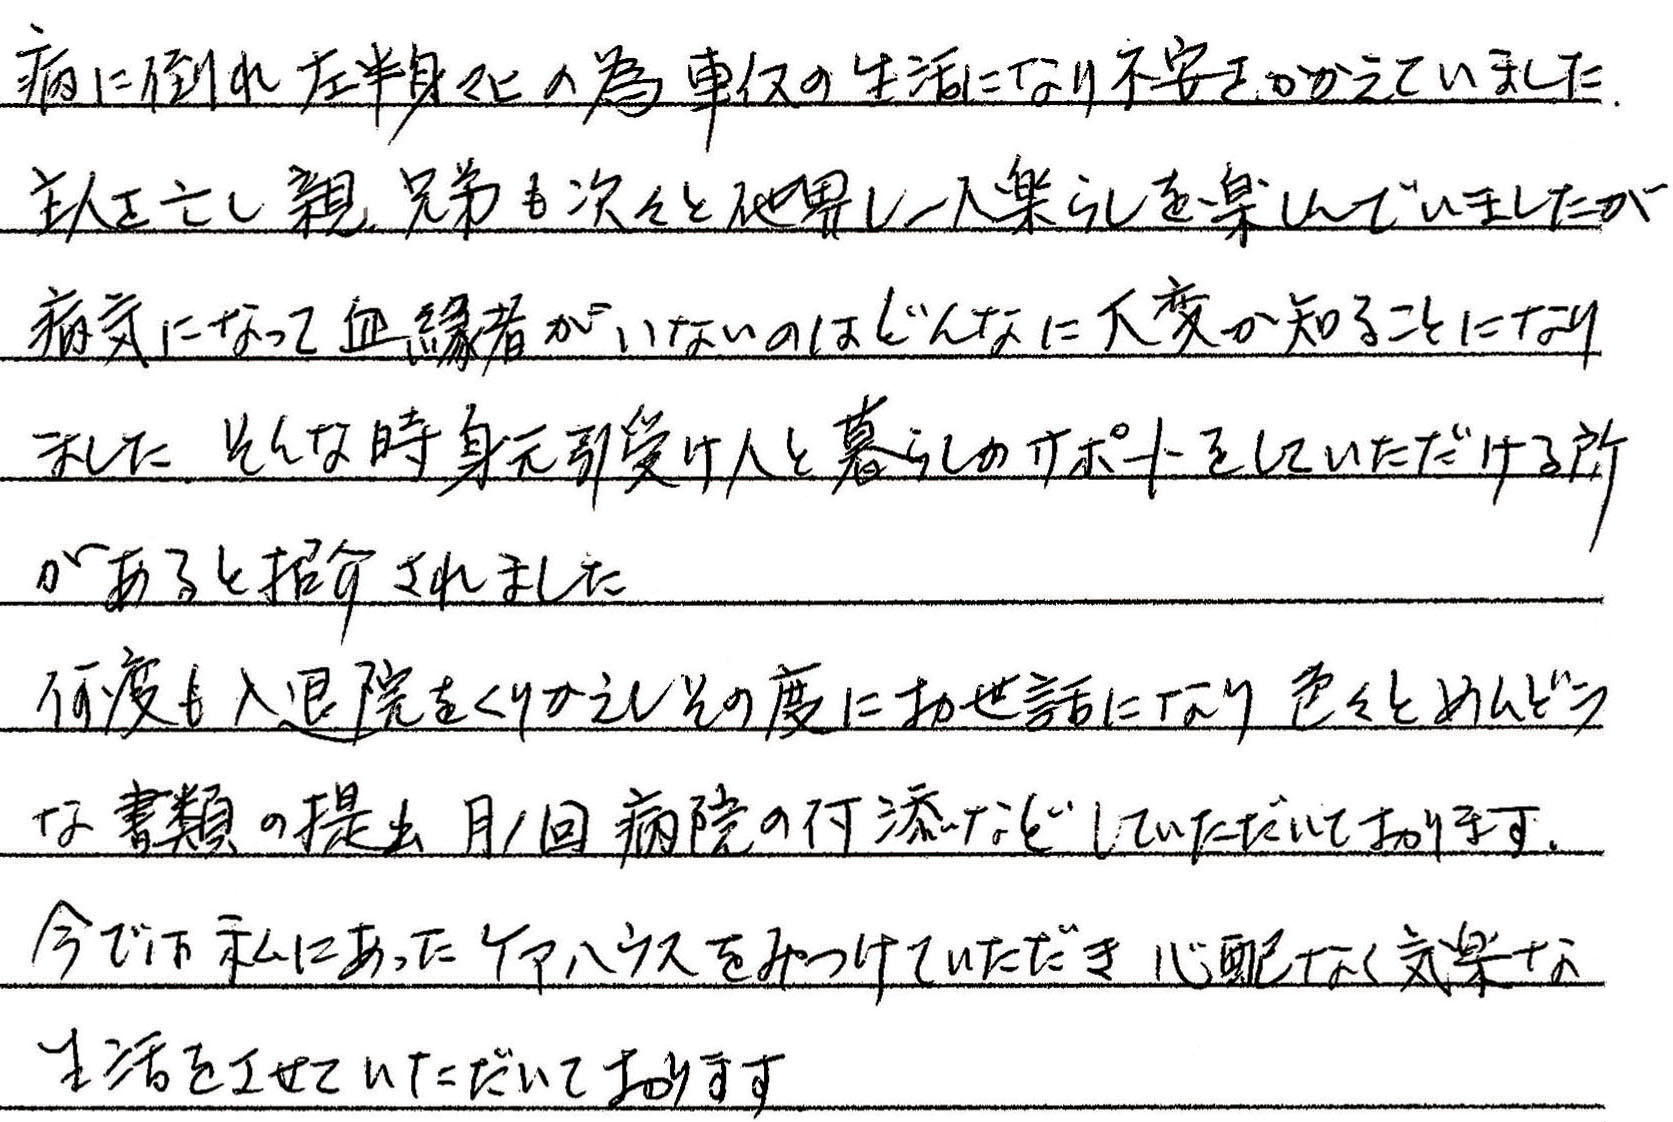 病に倒れ左半身マヒの為車イスの生活になり不安をかかえていました.
主人を亡し親、兄弟も次々と他界し一人楽らしを楽しんでいましたが
病気になって血縁者がいないのはどんなに大変か知ることになり
ました、そんな時身元引受け人と暮らしのサポートをしていただける所
があると紹介されました
何度も入退院をくりかえしその度にお世話になり色々とめんどう
な書類の提出 月1回病院の付添などしていただいております.
今では私にあったケアハウスをみつけていただき 心配なく気楽な
生活をさせていただいております